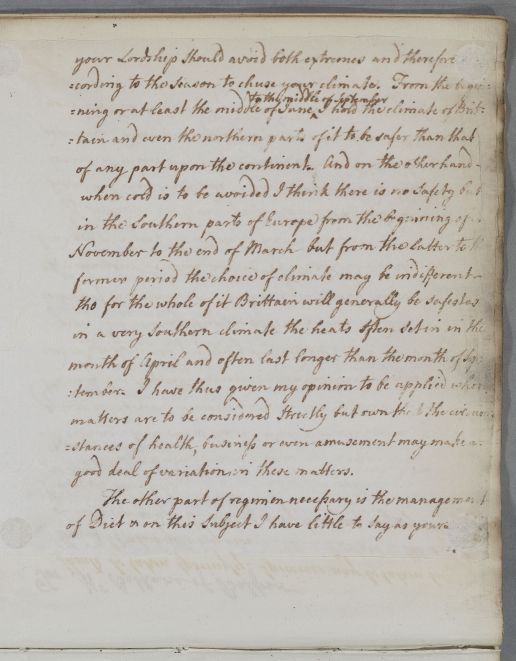 your Lordship should avoid both extremes and therefore
:cording to the season to chuse your climate. From the begin:
to the middle of September
:ning or at least the middle of June ^ I hold the climate of Brit:
:tain and even the northern parts of it to be safer than that
of any part upon the continent. And on the other hand
when cold is to be avoided I think there is no safety but
in the Southern parts of Europe from the beginning of
November to the end of March but from the latter to the
former period the choice of climate may be indifferent
tho for the whole of it Brittain will generally be safest as
in a very Southern climate the heats often set in in the
month of April and often last longer than the month of Sep
:tember. I have thus given my opinion to be applied when
matters are to be considered strictly but own that the circum
:stances of health, business or even amusement may make a
good deal of variation in these matters.
The other part of regimen necessary is the management
of Diet & on this Subject I have little to say as your